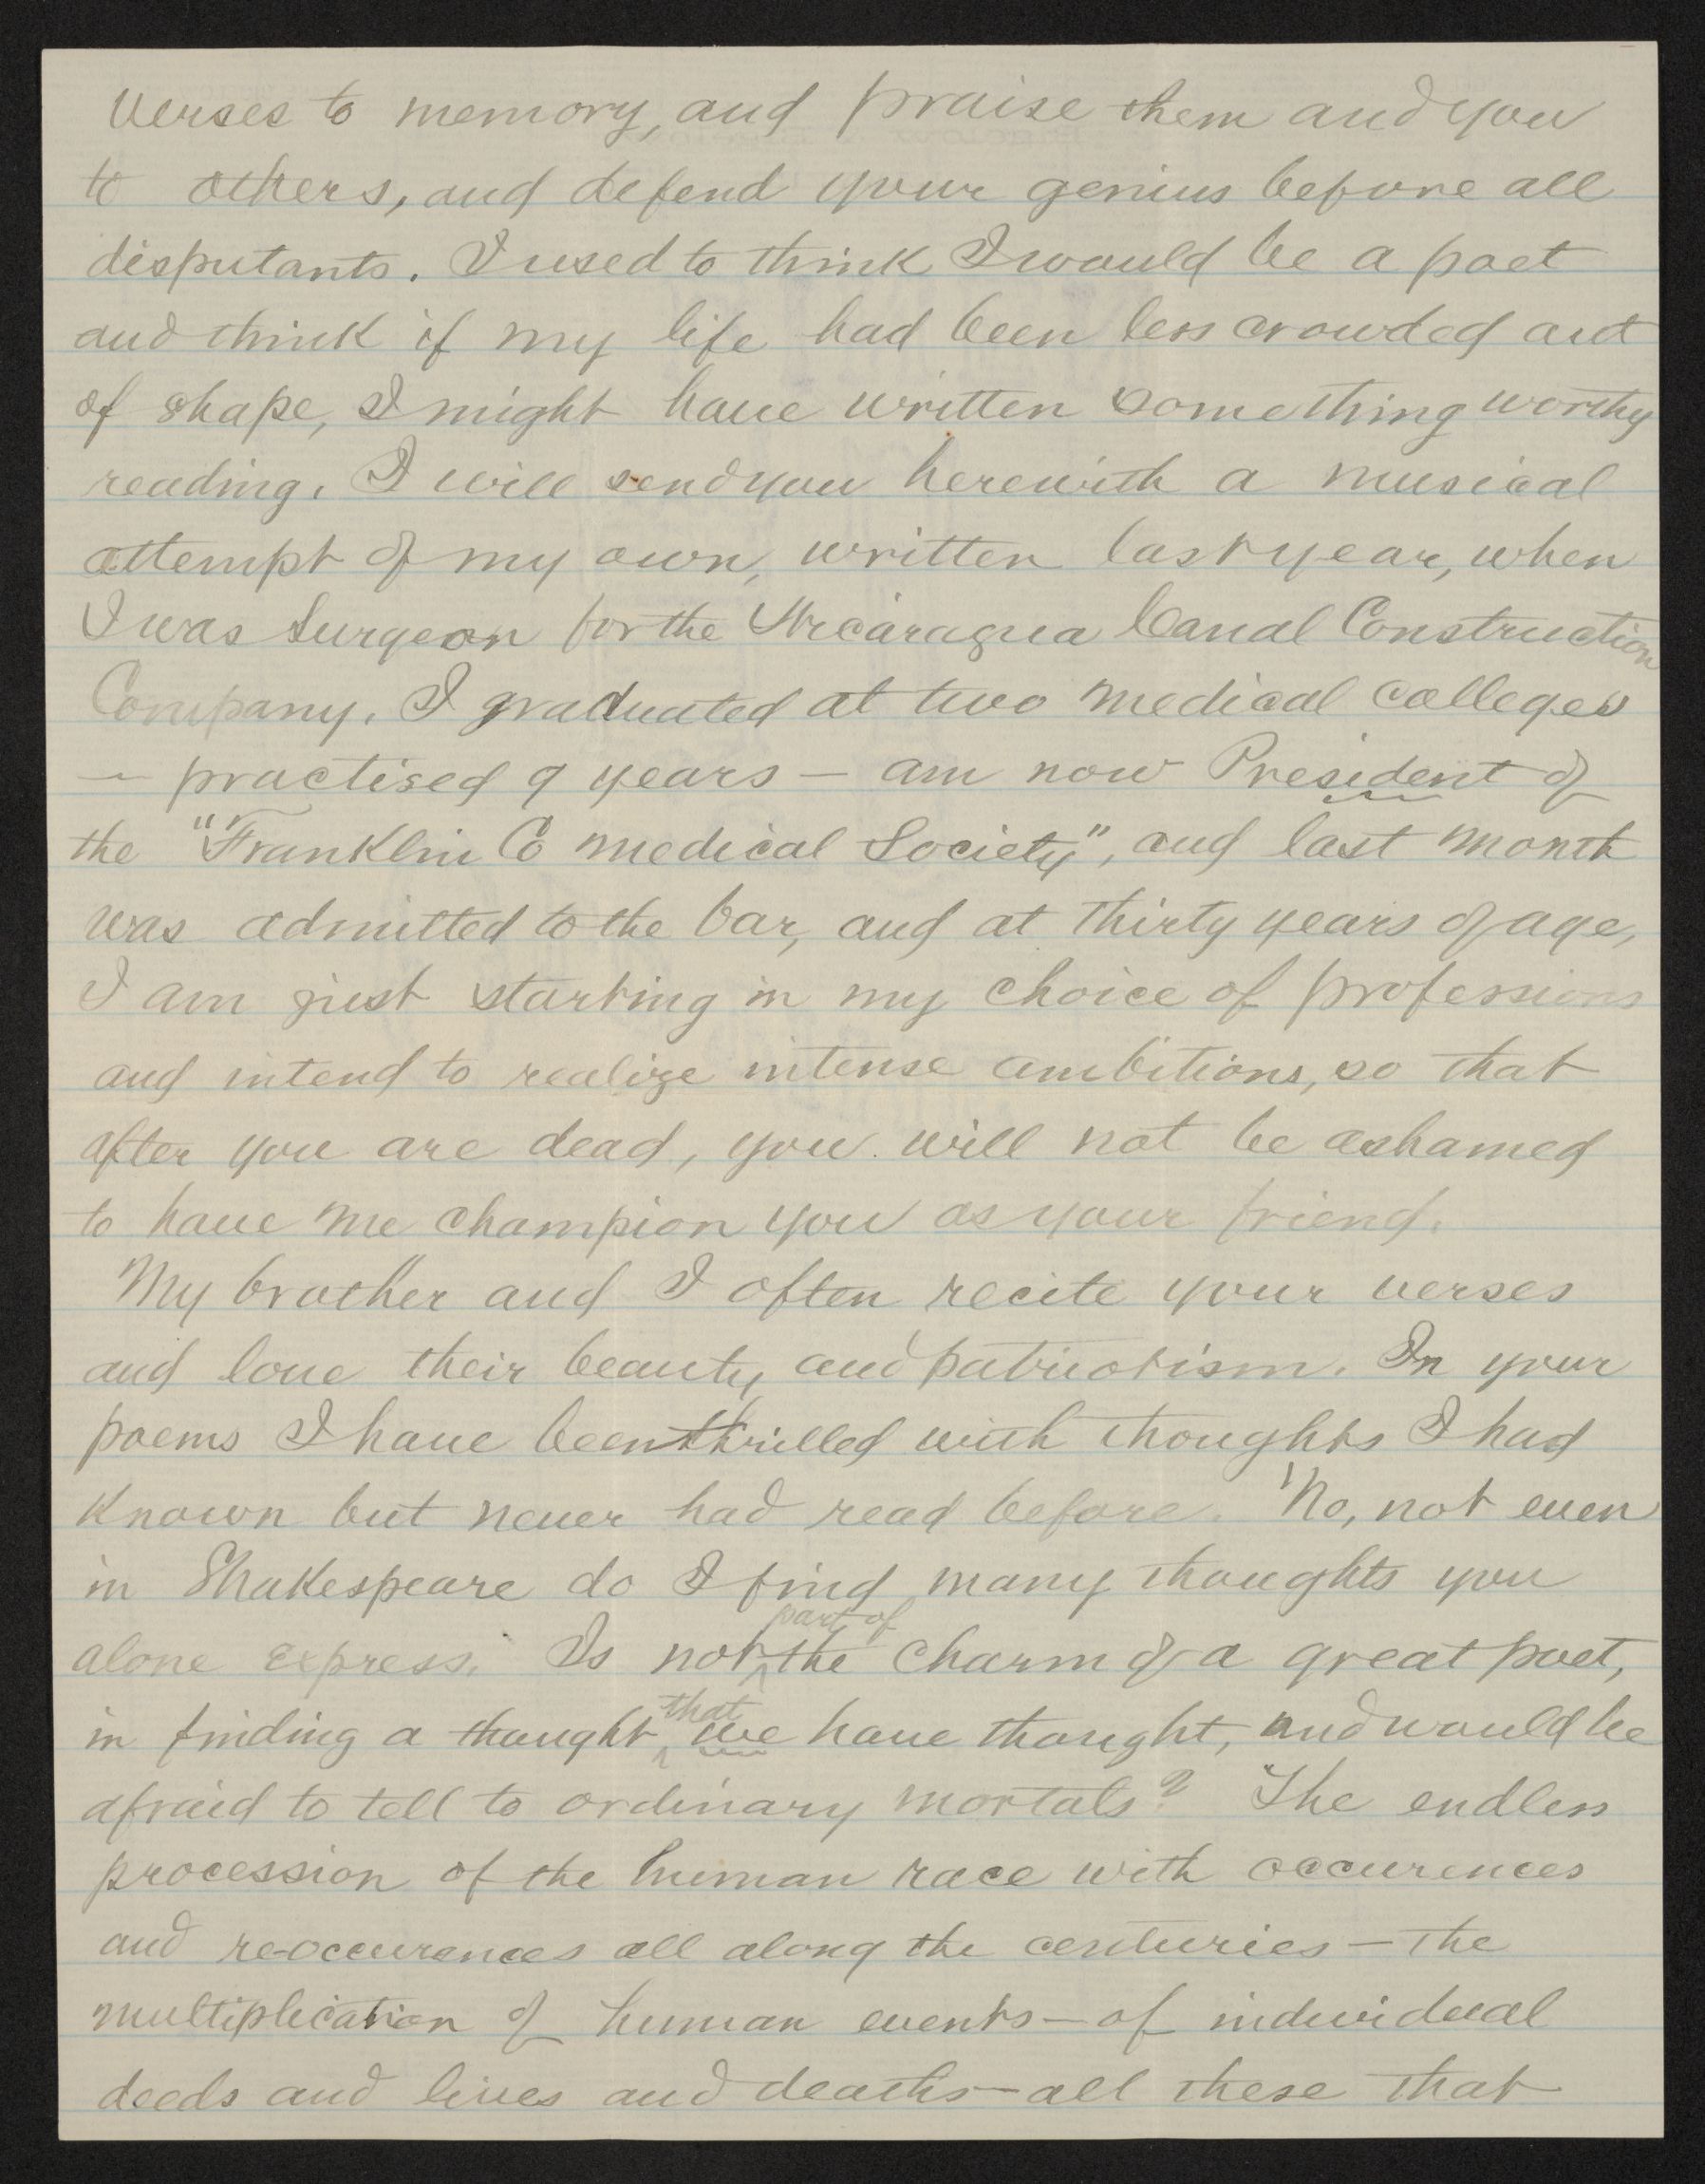 verses to memory, and praise them and you
to others, and defend your genius before all
disputants. I used to think I would be a poet
and think if my life had been less crowded out
of shape, I might have written something worthy
reading. I will send you herewith a musical
attempt of my own, written last year, when
I was Surgeon for the Nicaragua Canal Construction
Company. I graduated at two medical colleges
— practised 9 years — am now President of
the "Franklin Co medical Society", and last month
was admitted to the bar, and at thirty years of age,
I am just starting in my choice of professions
and intend to realize intense ambitions, so that
after you are dead, you will not be ashamed
to have me champion you as your friend.
My brother and I often recite your verses
and love their beauty and patriotism. In your
poems I have been thrilled with thoughts I had
known but never had read before. No, not even
in Shakespeare do I find many thoughts you
alone express. Is not part of the charm of a great poet,
in finding a thought that we have thought, and would be
afraid to tell to ordinary mortals? The endless
procession of the human race with occurences
and re-occurences all along the centuries — the
multiplication of human events — of individual
deeds and lives and deaths — all these that